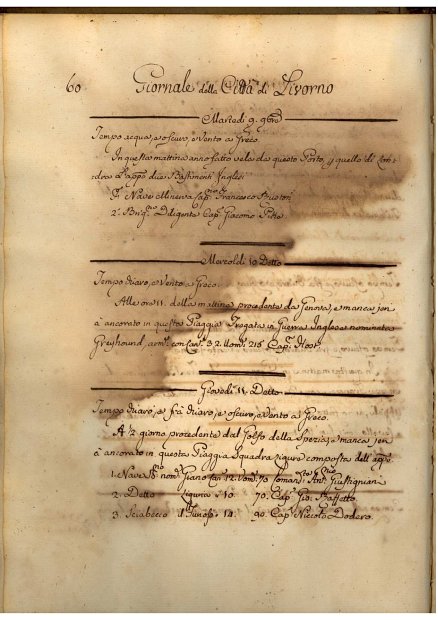 60 Giornale della Città di Livorno
Martedì 9. 9bre
Tempo acqua, e oscuro, e Vento a Greco
In questa mattina anno fatto vela da questo Porto, p quello di Lon-
dra gl'appo due Bastimenti Inglesi
Pa Nave Minerva Capno Francesco Buxton
2°. Brigno Diligente Capo Giacomo Pitte
Mercoldì 10 Detto
Tempo chiaro, e Vento a Greco
Alle ore 11. della mattina procedente da Genova, e manca jeri
à ancorato in questa Spiaggia Fregata in Guerra Inglese nominata
Greyhound, arma con Canni 32. Uomi 216 Capno
Giovedì 11. Detto
Tempo chiaro, e frà chiaro, e oscuro, e Vento a Greco
A ½ giorno procedente dal Golfo della Spezia, e manca jeri
à ancorato in questa Spiaggia Squadra Ligure composta dell'appe
1. Nave noma Giano Can 12. Uomi 70 Comandte Anto Giustignian
2. Detto Liguria " 10. 70. Capo Gio: Baffetto
3. Sciabecco il Furioso " 14. 90. Capo Niccolò Dodero.